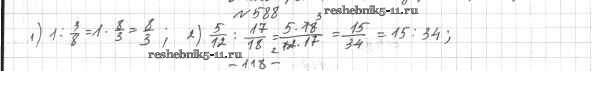 №588
reshebnik5-11.ru
1) 1 : 3/8 = 1 · 8/3 = 8/3 ; 2) 5/12 : 17/18 = 5·18 3/12·17 2 = 15/34 = 15 : 34 ;
reshebnik5-11.ru
- 118 -